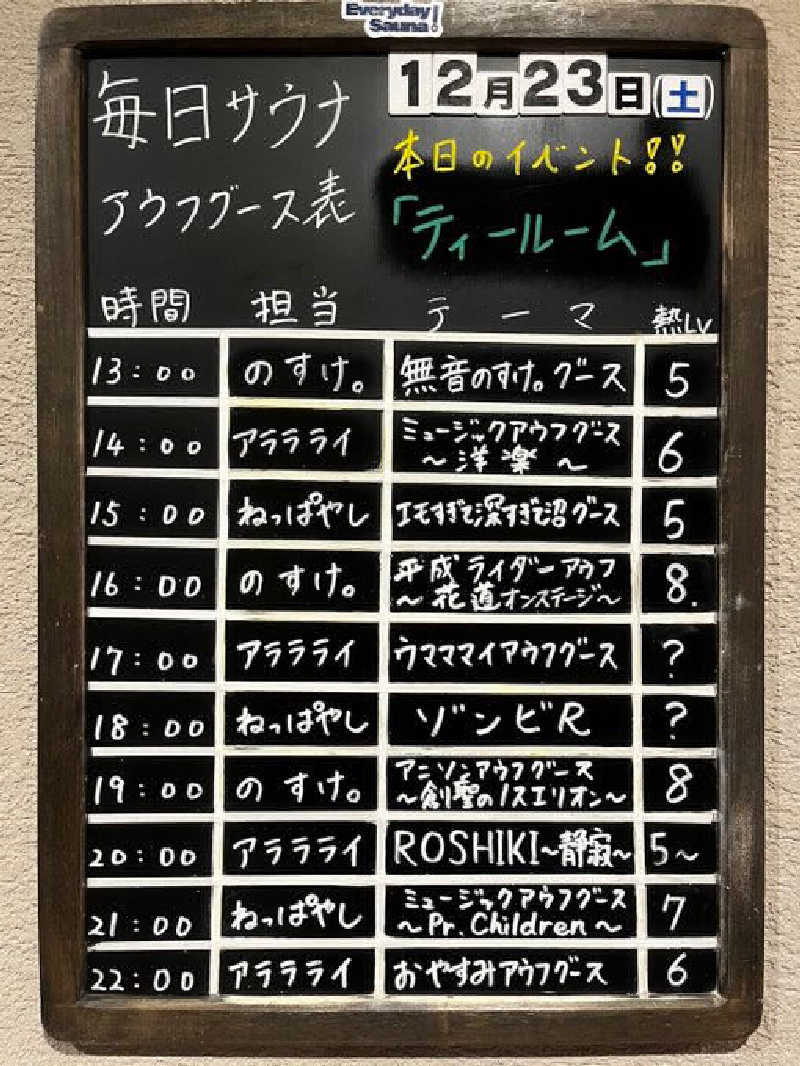 Everyday
Sauna!
毎日サウナ
アウフグース表
12月23日(土)
本日のイベント!!
「ティールーム」
時間 担当 テーマ 熱Lv
13:00 のすけ。 無音のすけ。グース 5
14:00 アラララライ ミュージックアウフグース
～洋楽～ 6
15:00 ねっぱやし エモすぎて深すぎて沼グース 5
16:00 のすけ。 平成ライダーアウフ
～花道オンステージ～ 8.
17:00 アラララライ ウママママイアウフグース ?
18:00 ねっぱやし ゾンビR ?
19:00 のすけ。 アニソンアウフグース
～創聖のノスエリオン～ 8
20:00 アラララライ ROSHIKI～静寂～ 5～
21:00 ねっぱやし ミュージックアウフグース
～Pr.Children～ 7
22:00 アラララライ おやすみアウフグース 6